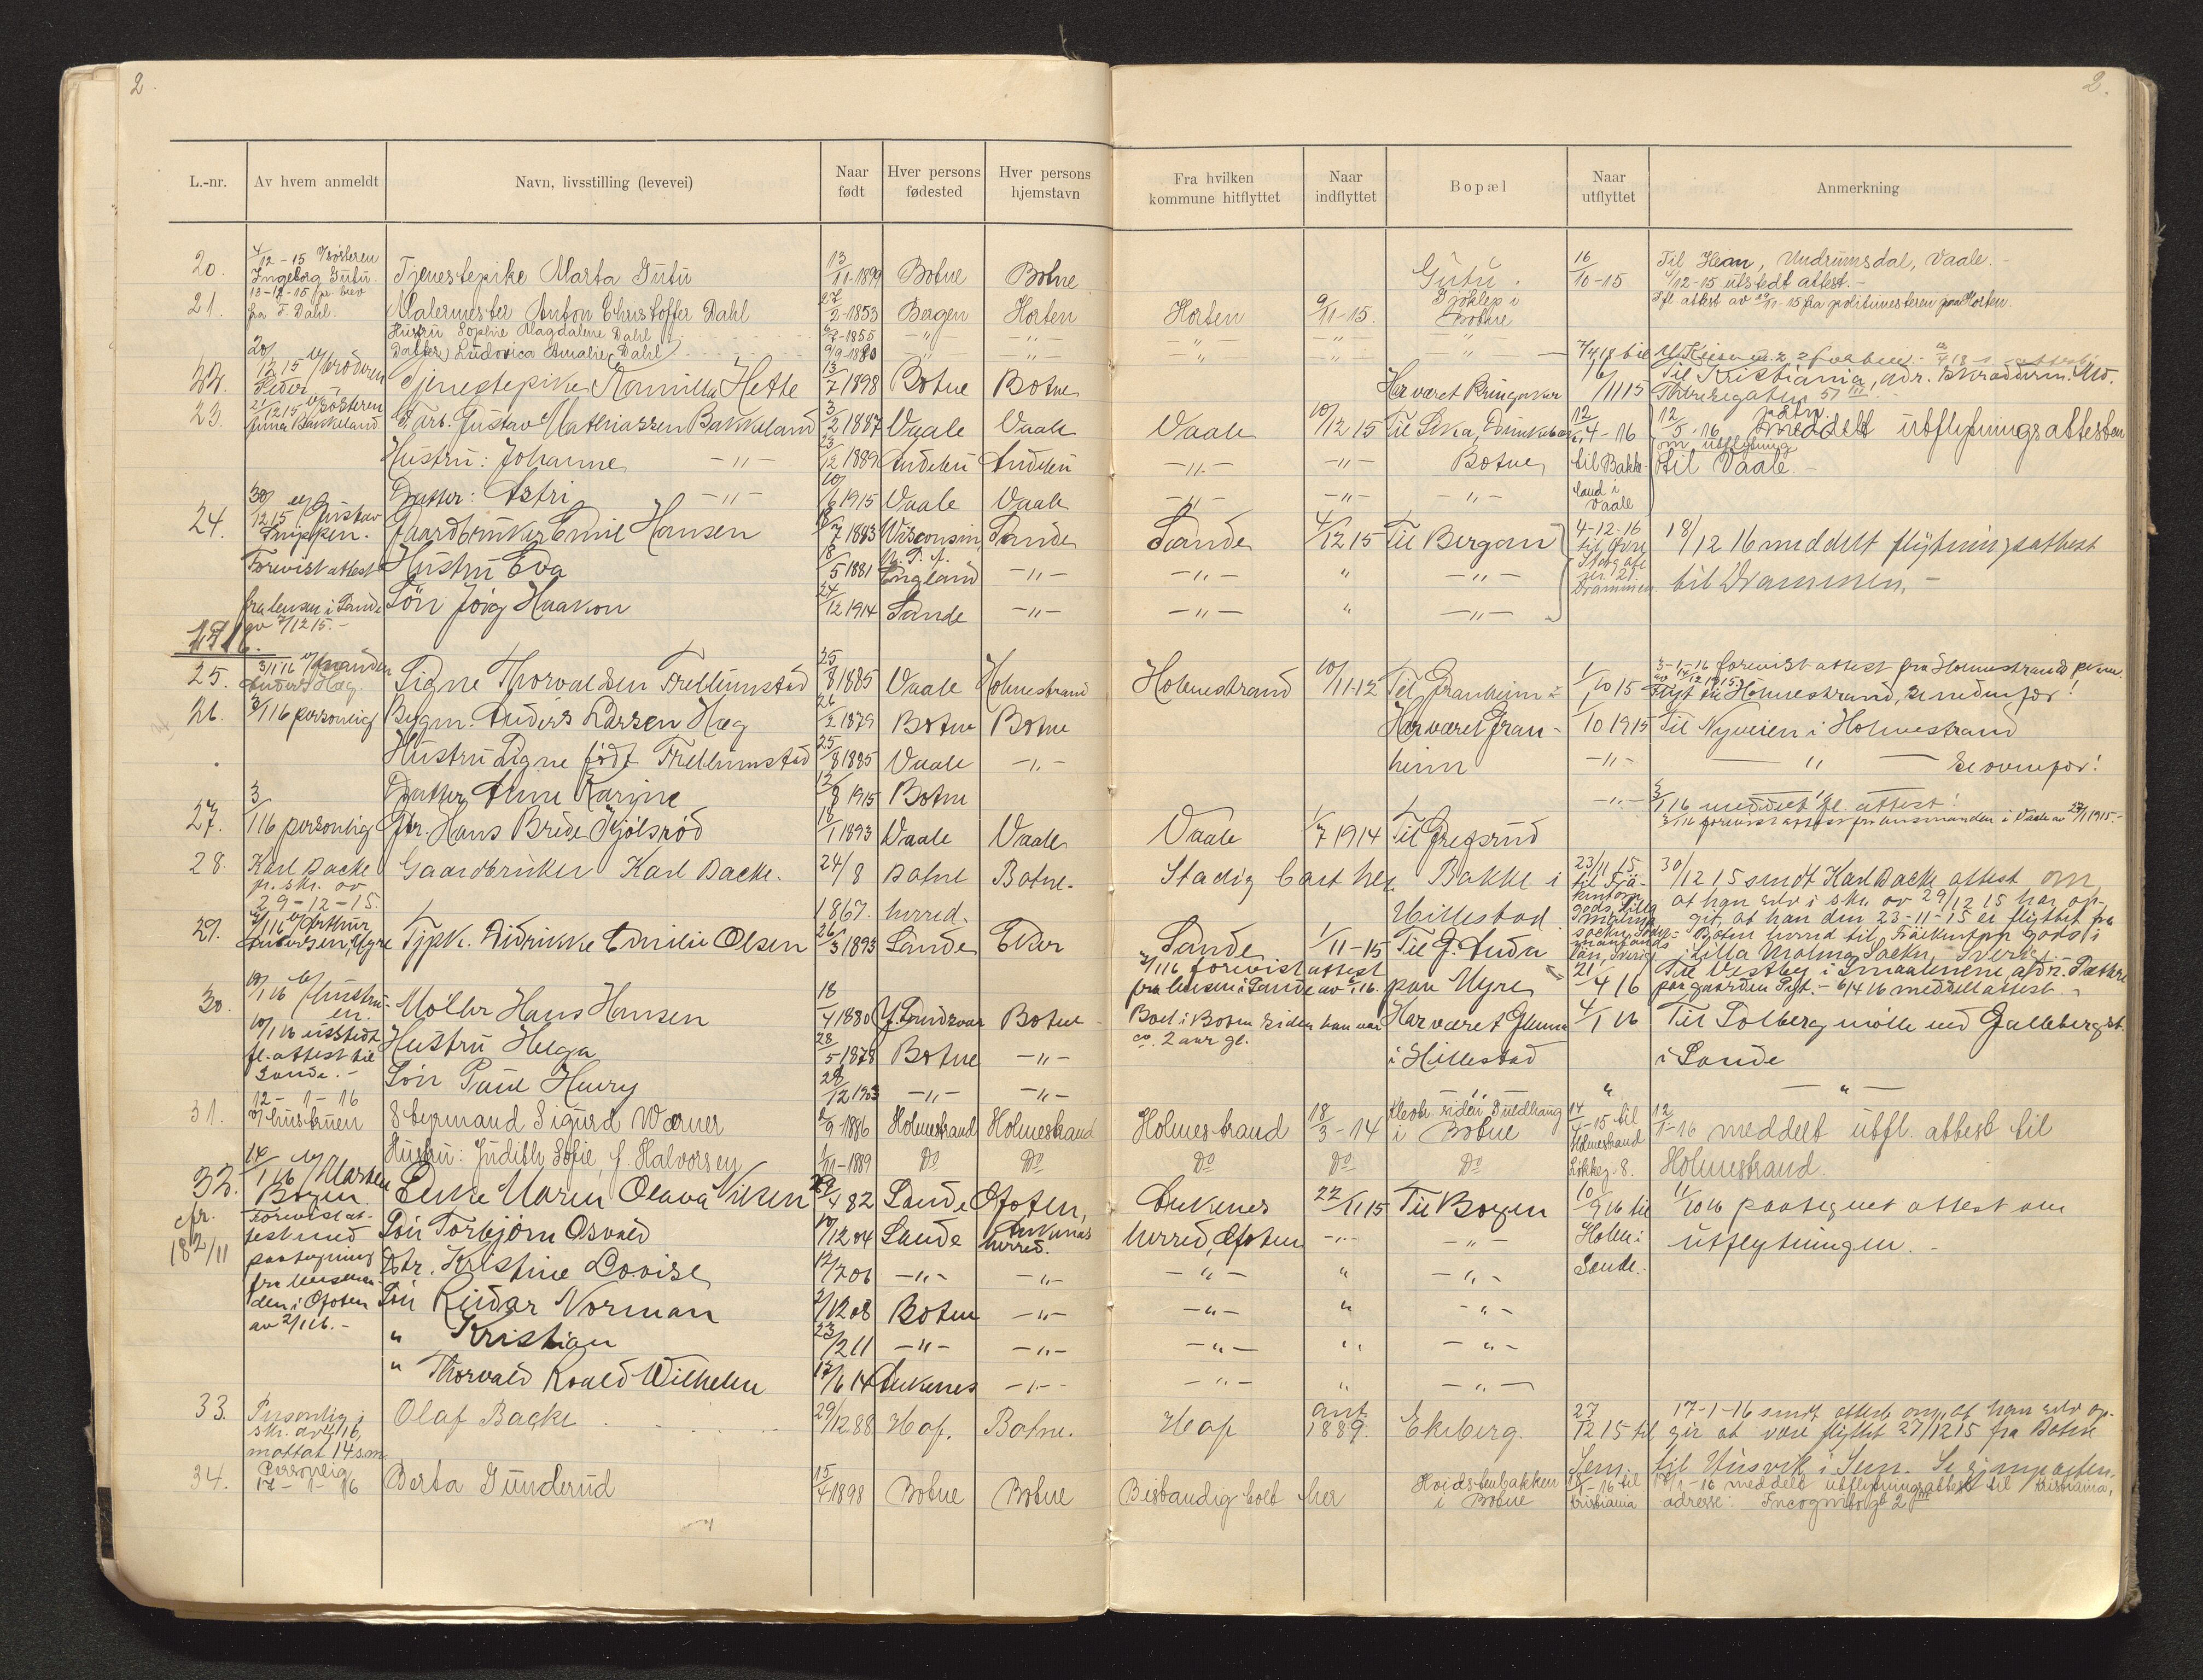 2.
2.
L.-nr. Av hvem anmeldt Navn, livsstilling (levevei) Naar født Hver persons fødested Hver persons hjemstavn Fra hvilken kommune hitflyttet Naar indflyttet Bopæl Naar utflyttet Anmerkning
20. 4/12-15 Ingeborg Gutu. Tjenestepike Marta Gutu 13/11-1899 Botne Botne Gutu. 16/10-15 Til Hem, Undrumsdal, Vaale. -
4/12-15 utstedt attest. -
21. 13-12-15 pr. brev fra F. Dahl. Malermester Anton Christoffer Dahl 27/2-1853 Bergen Horten Horten 9/11-15. i Botne Ifl attest av 11-15 fra politimesteren paa Horten.
Hustru Sophie Magdalene Dahl 2-1855 -"- -"- -"- -"- -"-
Datter, Ludovica Amalie Dahl 9/9-1880 -"- -"- -"- -"- -"-
22. 20/12 15 v/ Broderen Tjenestepike Kamilla Hette 13/7 1898 Botne Botne Har været Ringaker 1/11 15 Til Kristiania, adr.
Thereresgaten 51 III
23. 21/12 15 v/ Søsteren Bakkeland G. Arb. Gustav Mathiassen Bakkeland 3/2 1887 Vaale Vaale Vaale 10/12 15 12/4-16 12/5-16 meddelt utflytningsattesten
Hustru: Johanne -"- 1889 Andebu Andebu -"- -"- Botne til Bakke- om utflytning til Vaale. -
Datter: Astri -"- 10/6 1915 Vaale Vaale -"- -"- -"- land i Vaale
24. 30/12 15 v/ Gustav Snippen. Gaardbruker Emil Hansen 18/7 1883 Wisconsin, Sande Sande 4/12 15 Til Bergan 4-12-16 18/12 16 meddelt flytningsattest
Forevist attest Hustru Eva 18/5 1881 England -"- -"- " -"- til Øvre til Drammen. -
fra lensm. i Sande Søn Joig Haakon 24/12 1914 Sande -"- -"- " -"- Drammen
av 7/12 15. -
1916.
25. 3/1 16 v/ manden Anders Hæg. Signe Thorvaldsen Frellumstad 25/8 1885 Vaale Holmestrand Holmestrand 10/11-12 Til Granheim 1/10 15 3-1-16 forevist attest fra Holmestrand
Flyt til Holmestrand, se nedenfor!
26. 3/1 16 personlig Bygm. Anders Larsen Hæg 26/2 1879 Botne Botne Har været Gran- 1/10 1915 Til Nyveien i Holmestrand
Hustru Signe født Frellumstad 25/8 1885 Vaale -"- heim -"- -"- Se ovenfor!
Datter Anne Karine 12/8 1915 Botne -"- 3/1 16 meddelt fl. attest!
27. 3/1 16 personlig Hans Brede Kjølsrød 18/1 1893 Vaale Vaale Vaale 1/7 1914 Til Gregsrud 3/1 16 forevist attest fra lensmanden i Vaale av 27/1 1915. -
28. Karl Backe Gaardbruker Karl Backe. 24/8 Botne Botne. Stadig boet her Bakke i 23/11 15 30/12 15 sendt Karl Backe attest om
p. skr. av 29-12-15. 1867. herred. Hillestad at han selv i skr. av 29/12 15 har op-
git, at han den 23-11-15 er flyttet fra
Botne herred til Fräkentorp gods i
Lilla Malma Sockn, Sverige.
29. 3/1 16 v/ Arthur Andersen, Myre Tjpk. Didrikke Emilie Olsen 26/3 1893 Sande Eker Sande 1/11-15 Til G. Auda 21/4 16 Til Vestby i Smaalenene, adr. Sæthre
7/1 16 forevist attest fra lensm i Sande av 1 16. paa Myre paa gaarden - 6/4 16 meddelt attest.
30. 10/1 16 v/ hustruen. Møller Hans Hansen 18/4 1880 Botne Boet i Botne siden han var Har været Glenne 4/1 16 Til Solberg mølle ved Gallebergst.
10/1 16 utstedt Hustru Helga 28/5 1878 Botne -"- co. 2 aar gl. i Hillestad i Sande
fl. attest til Sande. - Søn Paul Henry 28/12 1903 -"- -"- " " -"-
31. 12-1-16 v/ hustruen Styrmand Sigurd Werner 2/9-1886 Holmestrand Holmestrand Holmestrand 18/3-14 i Botne 14/4-15 til Holmestrand 12/1-16 meddelt utfl. attest til
Hustru: Judith Sofie, f. Halvorsen 1/11-1889 Do Do Do Do Do Holmestrand.
32. 14/1 16 v/ Marten Bogen. Enke Maren Olava Nilsen 4 82 Sande Ofoten, Ankenes 22/11 15 Til Bogen 10/9 16 til 11/10 16 paategnet attest om
cfr. Forevist at- Søn Torbjørn Osvald 12 04 Sande Ankenes herred. herred, Ofoten -"- -"- Holm i utflytningen. -
182/11 test med paategning Dtr. Kristine Lovise 12/7 06 -"- -"- -"- " -"- Sande.
fra lensman- Søn Reidar Norman 2/12 08 Botne -"- -"- " -"-
den i Ofoten " Kristian 23/2 11 -"- -"- -"- " -"-
av 2/1 16. - " Thorvald Roald Wilhelm 17/6 14 Ankenes -"- -"- " -"-
33. Personlig i Olaf Backe 29/12 88 Hof. Botne. Hof ant. 1889. Ekeberg. 27/12 15 til 17-1-16 sendt attest om, at han selv op-
mottat 14 s.m. Sem gir at være flyttet 27/12 15 fra Botne
til Husvik i Sem.
34. Personlig 17-1-16 Berta Gunderud 15/4 1898 Botne Botne Bestandig bott her Hvidstenbakken i Botne 16 til Kristiania 1-16 meddelt utflytningsattest til Kristiania,
adresse: Incognitogt 2 III